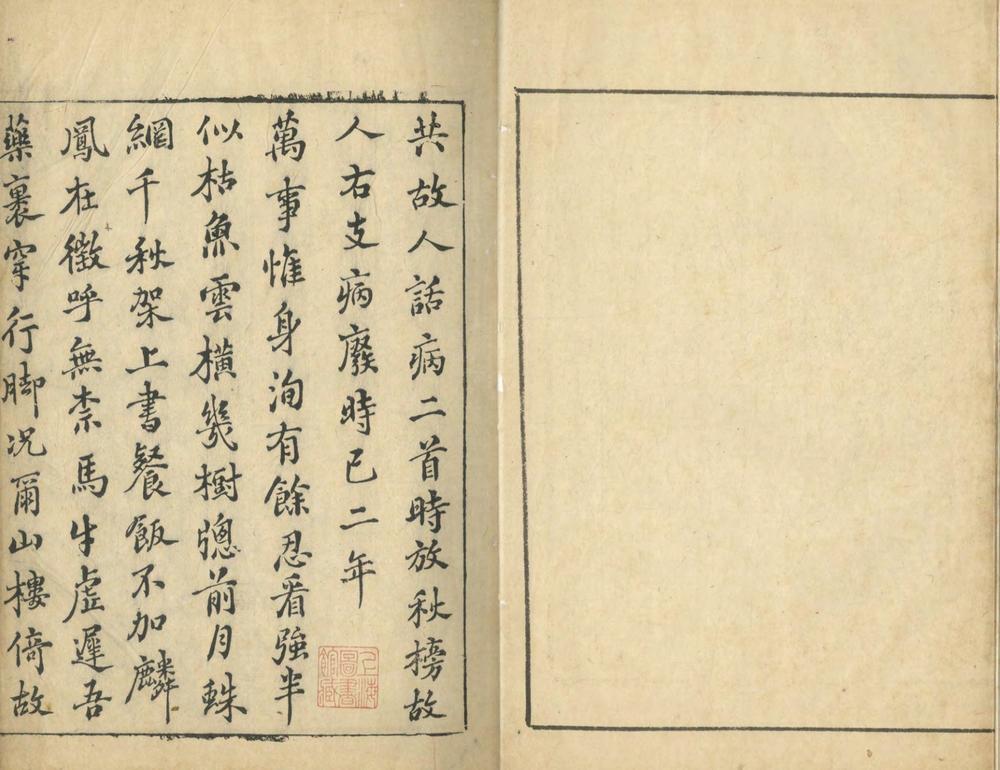 共故人話病二首時放秋榜故
人右支病廢時已二年
萬事惟身洵有餘忍看強半
似枯魚雲橫幾樹牕前月蛛
網千秋架上書餐飯不加麟
鳳在徵呼無柰馬牛虛遲吾
藥裹穿行脚况爾山樓倚故
上海圖書館藏